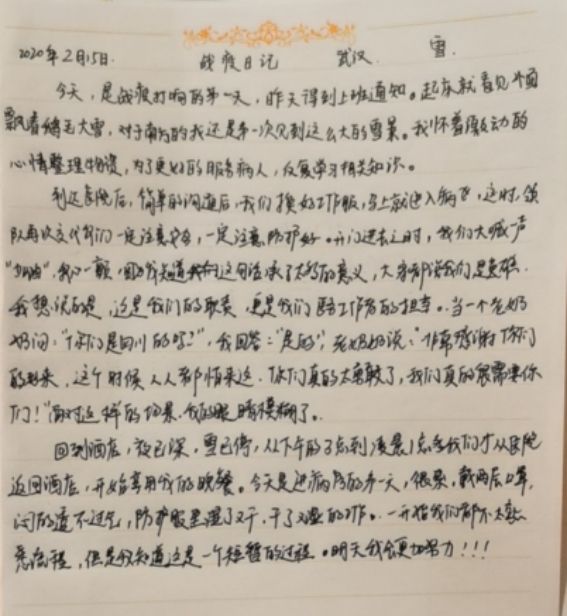 2020年2月15日. 战疫日记 武汉 雪.
今天，是战疫打响的第一天，昨天得到上班通知。起床就看见外面
飘着鹅毛大雪，对于南方的我还是第一次见到这么大的雪景。我怀着激动的
心情整理物资，为了更好的服务病人，反复学习相关知识。
到达医院后，简单的沟通后，我们换好工作服，马上就进入病区，这时，领
队再次交代我们一定注意安全，一定注意防护好。开门进去之时，我们大喊一声
"加油"，我心一颤，因为我知道我们这句话承了太多的意义，大家都说我们是英雄.
我想说的是，这是我们的职责，更是我们医务工作者的担当。当一个老奶
奶问："你们是四川的吗？"，我回答："是的"，老奶奶说："非常感谢你们
的到来，这个时候人人都怕来这，你们真的太勇敢了，我们真的很需要你
们！"面对这样的场景，我的眼睛模糊了。
回到酒店，夜已深，雪已停，从下午的3点到凌晨1点多我们才从医院
返回酒店，开始享用我的晚餐。今天是进病房的第一天，很累，戴两层口罩，
闷的透不过气，防护服里湿了又干，干了又湿的工作。一开始我们都不太熟
悉流程，但是我知道这是一个短暂的过程。明天我会更加努力！！！